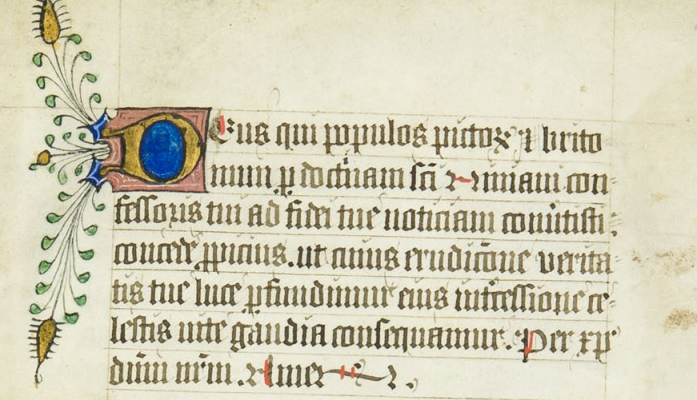 Deus qui populos pictoꝝ ⁊ brito
num ꝑ doctͥnam sc̄i Niniani con-
fessoris tui ad fidei tue noticiam conũtisti:
concede ꝓpicius. ut cuius erudicõne verita-
tis tue luce ꝑfundimur eius int̃cessione ce-
lestis uite gaudia consequamur. Per xp̄m
dñm nr̃m. Amen.